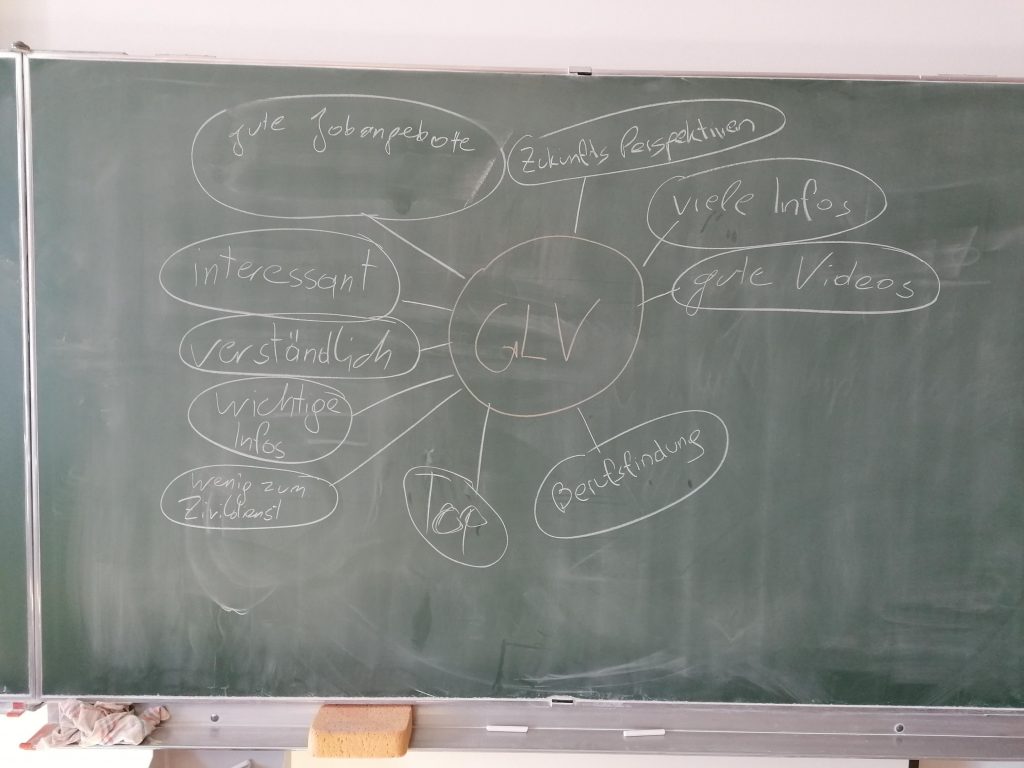 gute Jobangebote
Zukunfts Perspektiven
viele Infos
interessant
gute Videos
GLV
verständlich
wichtige
Infos
Berufsfindung
wenig zum
Zivildienst
Top